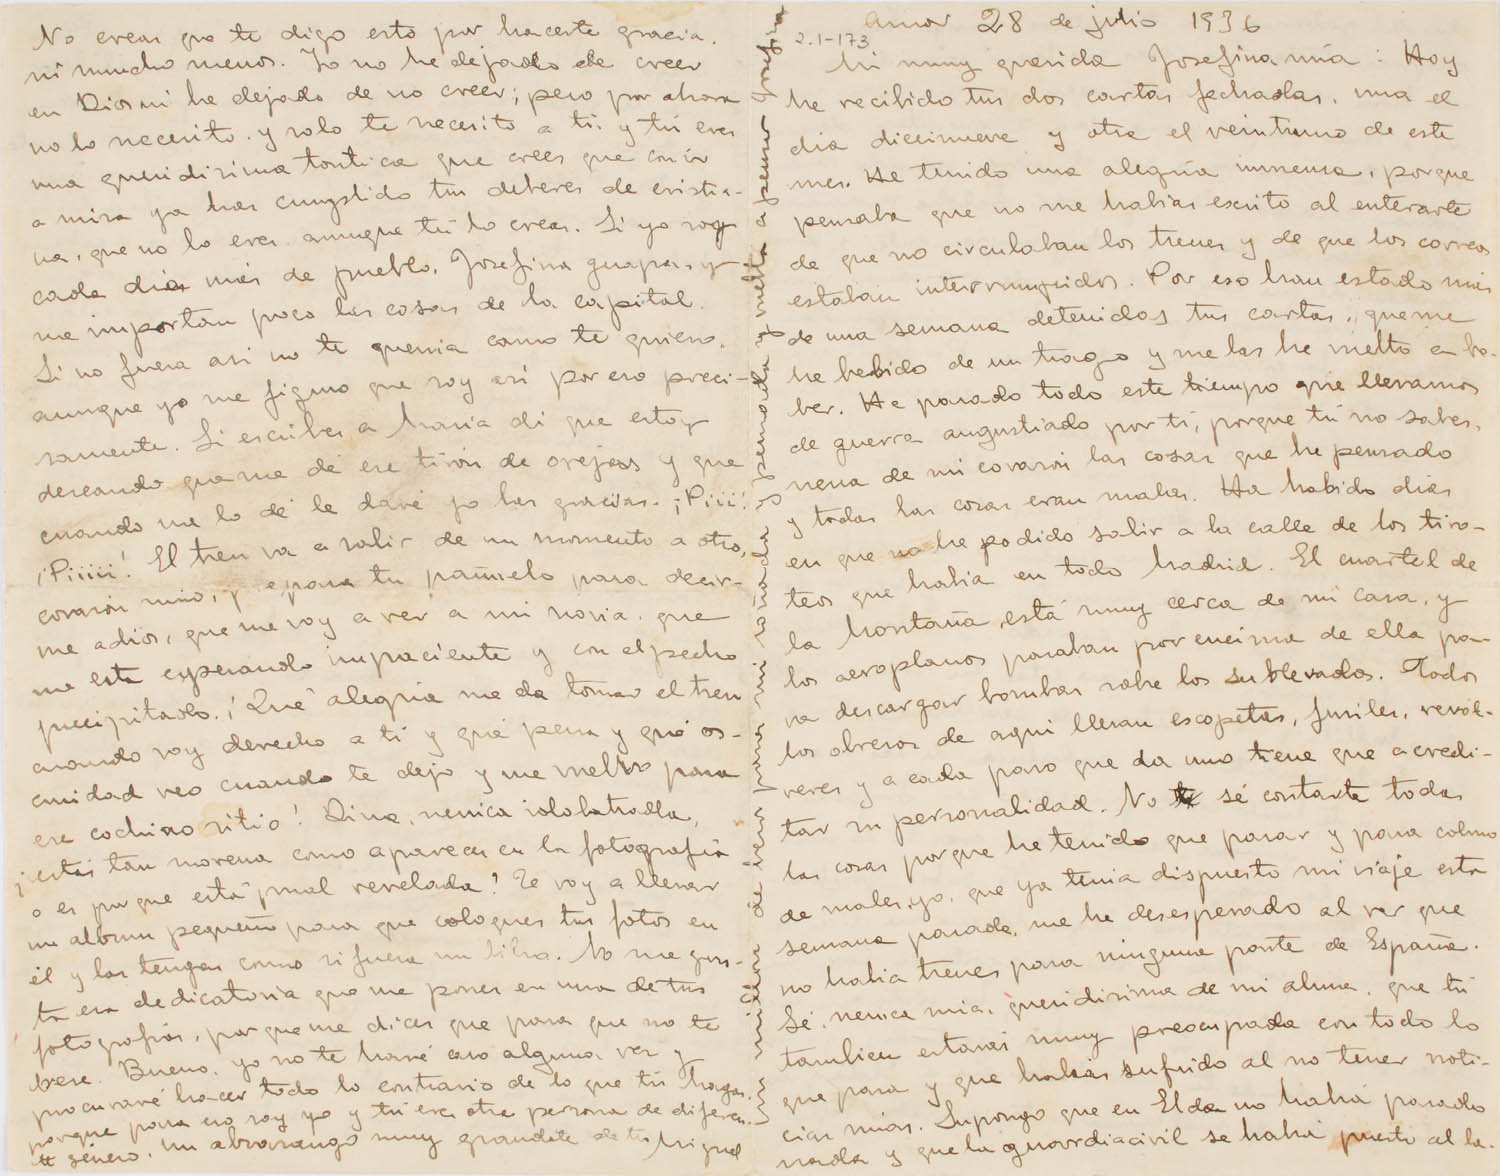 Amor 28 de julio 1936
2.1-173
Mi muy querida Josefina mía: Hoy
he recibido tus dos cartas fechadas, una el
día diecinueve y otra el veintiuno de este
mes. He tenido una alegría inmensa, porque
pensaba que no me habías escrito al enterarte
de que no circulaban los trenes y de que los correos
estaban interrumpidos. Por eso han estado más
de una semana detenidas tus cartas, que me
he bebido de un trago y me las he vuelto a be-
ber. He pasado todo este tiempo que llevamos
de guerra angustiado por ti, porque tú no sabes,
nena de mi corazón las cosas que he pensado
y todas las cosas eran malas. Ha habido días
en que no he podido salir a la calle de los tiro-
teos que había en todo Madrid. El cuartel de
la Montaña está muy cerca de mi casa, y
los aeroplanos pasaban por encima de ella pa-
ra descargar bombas sobre los sublevados. Todos
los obreros de aquí llevan escopetas, fusiles, revól-
veres y a cada paso que da uno tiene que acredi-
tar su personalidad. No sé contarte todas
las cosas porque he tenido que pasar y para colmo
de males, yo, que ya tenía dispuesto mi viaje esta
semana pasada, me he desesperado al ver que
no había trenes para ninguna parte de España.
Sé, nenica mía, queridísima de mi alma, que tú
tambien estarás muy preocupada con todo lo
que pasa y que habías sufrido al no tener noti-
cias mías. Supongo que en Elda no habrá pasado
nada y que la guardia civil se habrá puesto al la-
No creas que te digo esto por hacerte gracia,
ni mucho menos. Yo no he dejado de creer
en Dios ni he dejado de no creer; pero por ahora
no lo necesito y solo te necesito a ti y tú eres
una queridísima tontica que crees que con ir
a misa ya has cumplido tus deberes de cristia-
na, que no lo eres aunque tú lo creas. Si yo soy
cada día más de pueblo, Josefina guapa, y
me importan poco las cosas de la capital.
Si no fuera así no te querría como te quiero,
aunque yo me figuro que soy así por eso preci-
samente. Si escribes a María di que estoy
deseando que me dé ese tirón de orejas y que
cuando me lo dé le daré yo las gracias. ¡Piii!
¡Piiiii! El tren va a salir de un momento a otro,
corazón mío, prepara tu pañuelo para decir-
me adiós, que me voy a ver a mi novia que
me está esperando impaciente y con el pecho
precipitado. ¡Qué alegría me da tomar el tren
cuando voy derecho a ti y qué pena y qué os-
curidad veo cuando te dejo y me vuelvo para
ese cochino sitio! Dime, nenica idolatrada,
¡estás tan morena como apareces en la fotografía
o es porque está mal revelada! Te voy a llevar
un album pequeño para que coloques tus fotos en
él y las tengas como si fuera un libro. No me gus-
ta esa dedicatoria que me pones en una de tus
fotografías, porque me dices que para que no te
bese. Bueno, yo no te haré caso alguna vez y
procuraré hacer todo lo contrario de lo que tú hagas,
porque para eso soy yo y tú eres otra persona de diferen-
te género. Un abrazango muy grandote de tu Miguel